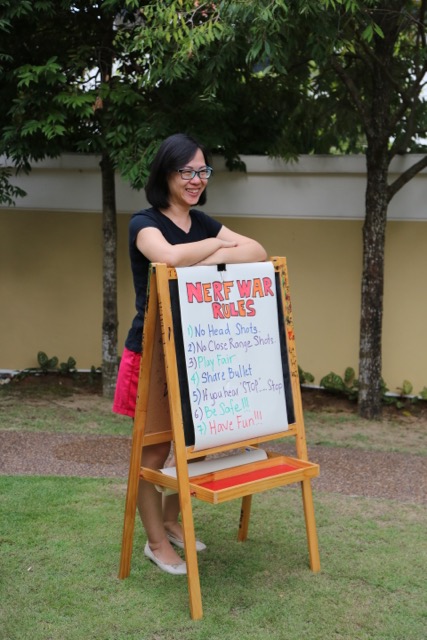 NERF WAR
RULES
1) No Head Shots.
2) No Close Range Shots.
3) Play Fair
4) Share Bullet
5) If you hear "STOP"....Stop
6) Be Safe!!!
7) Have Fun!!!